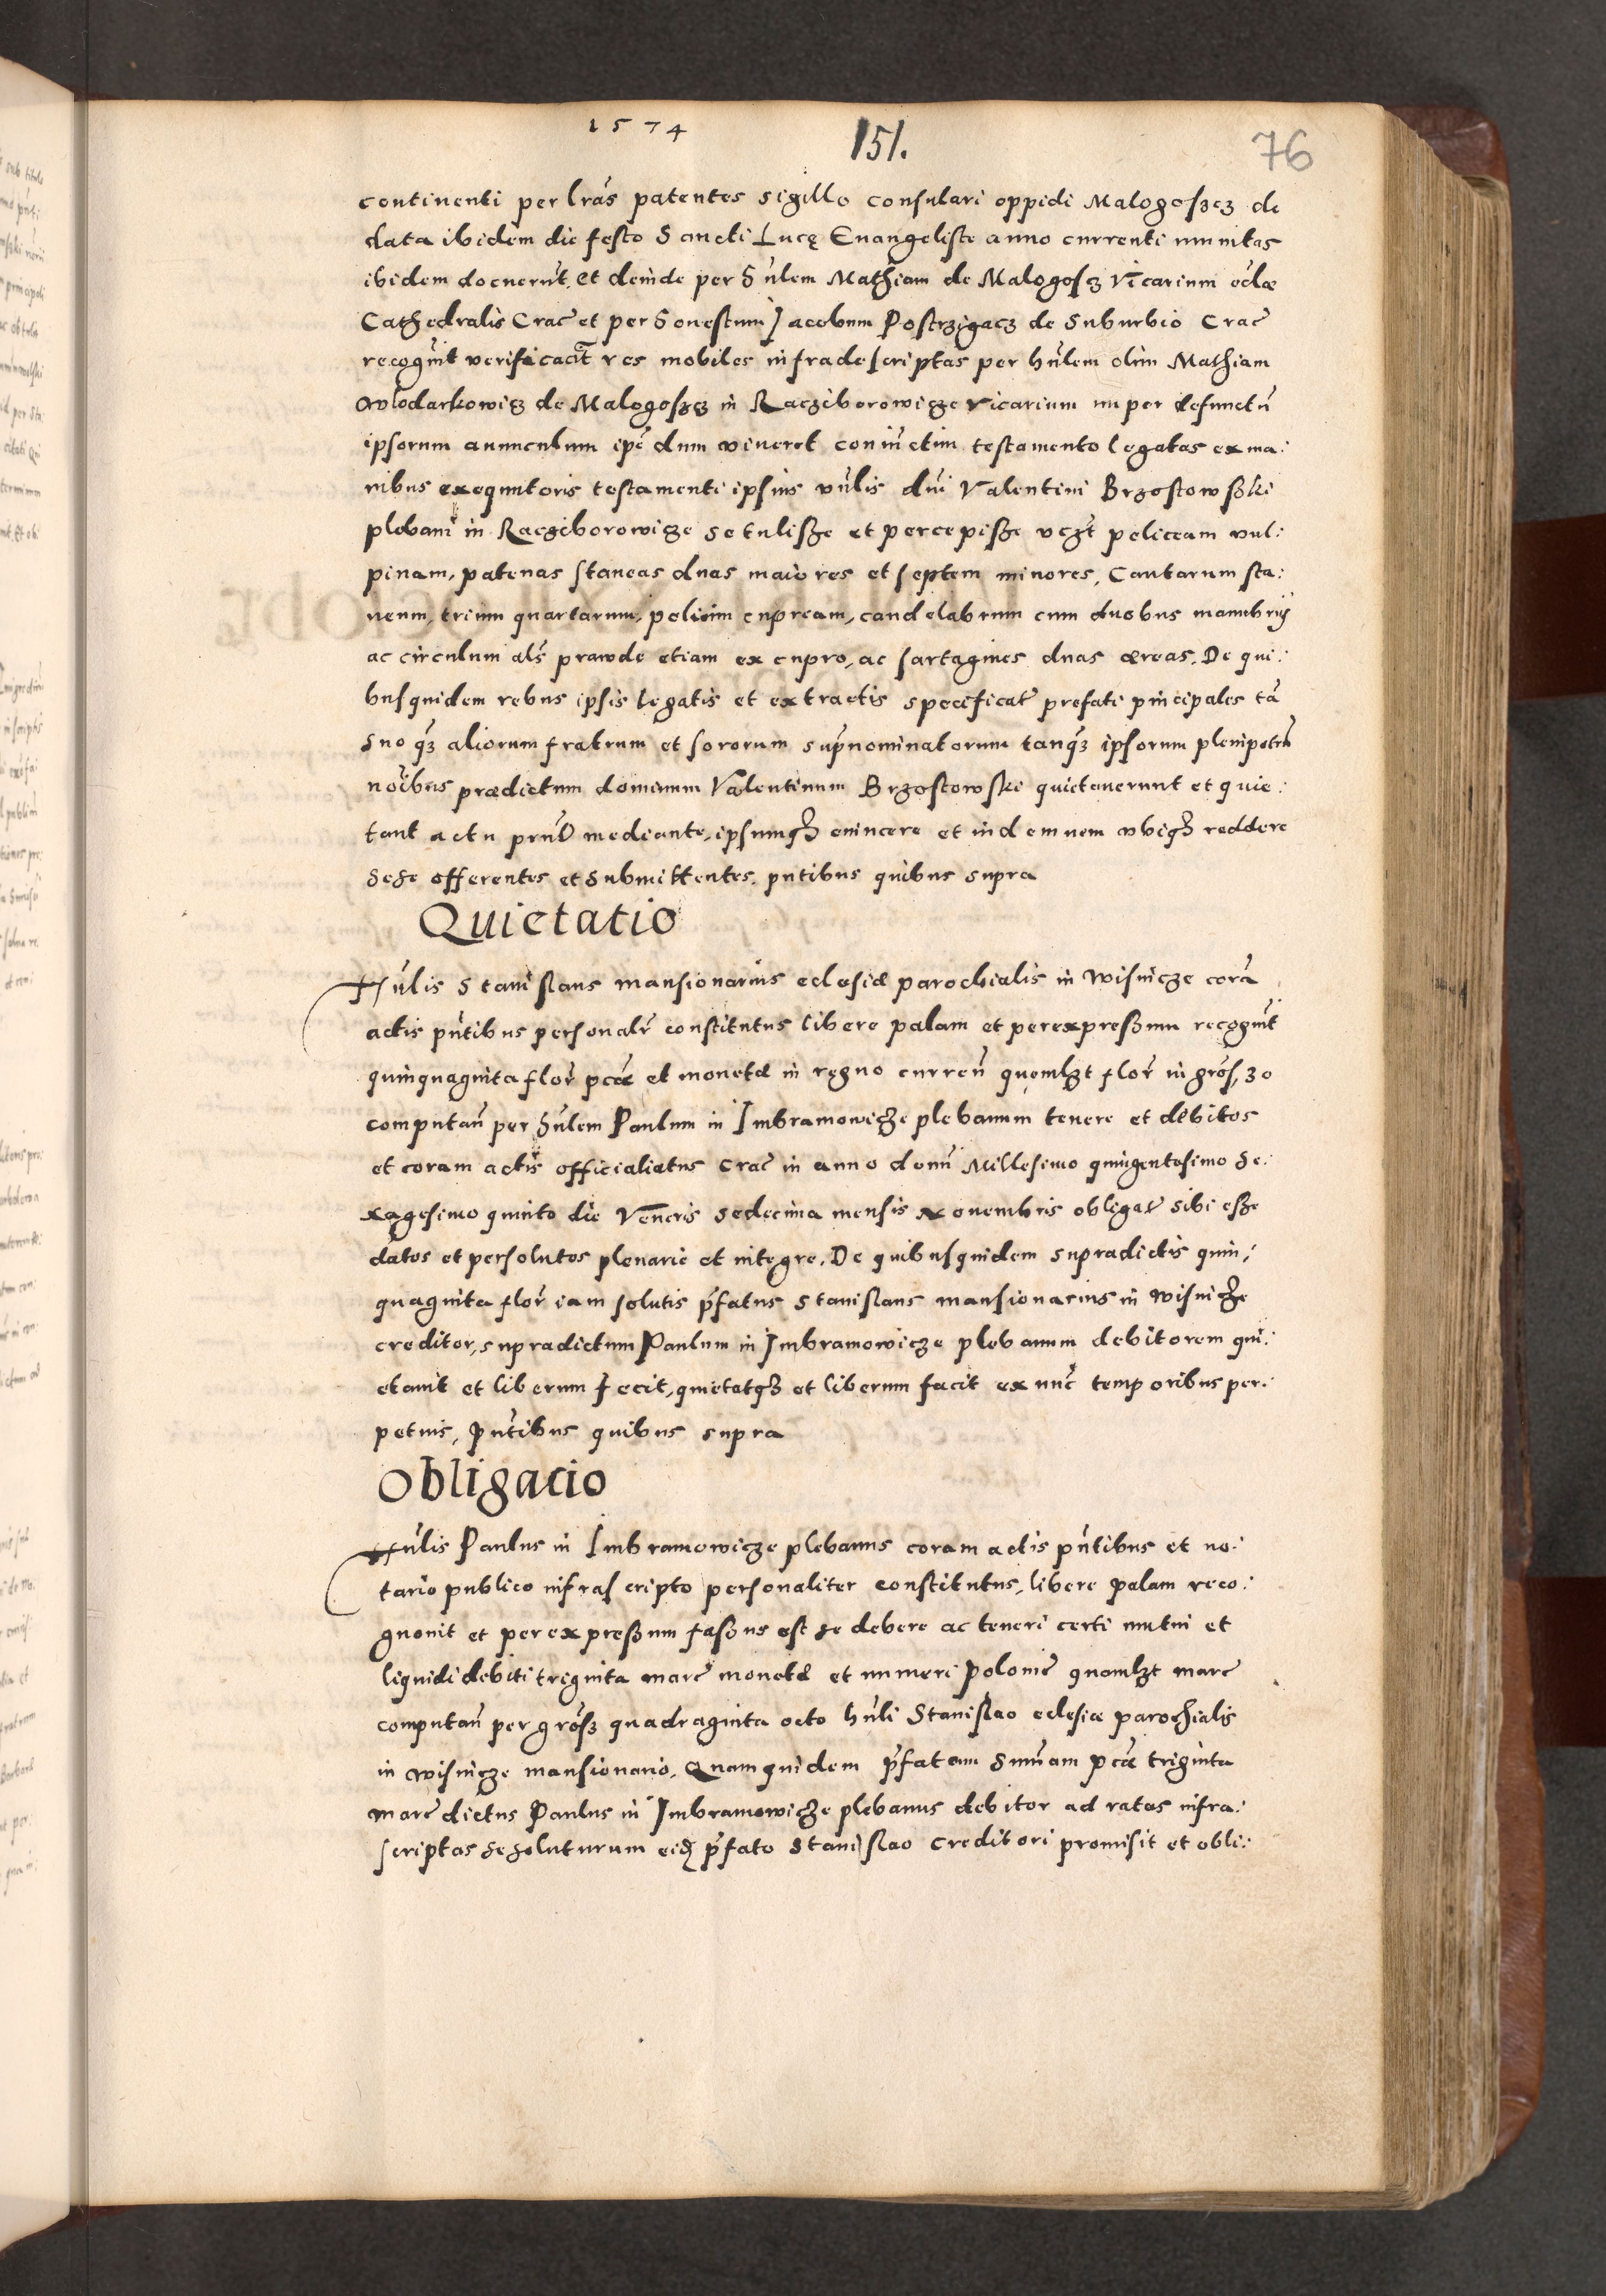 1574
151.
76
continenti per lrās patentes sigillo consulari oppidi Malogoszcz de
data ibidem die festo Sancti Lucę Euangeliste anno currenti munitas
ibidem docuerūt, et deinde per hūlem Mathiam de Malogoscz Vicarium eclæ
Cathedralis Crac̄ et per honestum Jacobum Postrzigacz de Suburbio Crac̄
recogūit verificacīt res mobiles infradescriptas per hūlem olim Mathiam
Wlodarkowicz de Malogoszcz in Racziborowicze Vicarium nuper defunctū
ipsorum auunculum ipē dum viueret testamento legatas ex ma:
nibus exequutoris testamenti ipsius vūlis dn̄i Valentini Brzostowski
plebani in Racziborowicze se tulisze et percepisze vczt peliceam vul:
pinam, patenas staneas duas maiores et septem minores, Cantarum sta:
neum, trium quartarum, peluim cupream, candelabrum cum duobus manubrijs
ac circulum als̄ prawde etiam ex cupro, ac sartagines duas æreas. De qui:
busquidem rebus ipsis legatis et extractis specificat̄ prefati principales tā
suo q̄z aliorum fratrum et sororum sup̄nominatorum tanq̄z ipsorum plenipotēn
noībus prædictum dominum Valentinum Brzostowski quietauerunt et quie:
tant actu p̄n̄t mediante, ipsumq̄z euincere et indemnem vbiq̄z reddere
sese offerentes et submittentes. pn̄tibus quibus supra
Quietatio
Hūlis Stanislaus mansionarius eclesiæ parochialis in Wisnicze corā
actis pn̄tibus personalr̄ constitutus libere palam et perexpreszum recogūit
quinquaginta flor̄ pcæ et monetæ in regno curren̄ quemlzt flor̄ in gros̄, 30
computan̄ per hūlem Paulum in Imbramowicze plebanum tenere et debitos
et coram actis officialiatus Crac̄ in anno domī Millesimo quingentesimo se:
xagesimo quinto die Veneris sedecima mensis Nouembris obligat̄ sibi esze
datos et persolutos plenarie et integre. De quibusquidem supradictis quin:
quaginta flor̄ iam solutis p̄fatus Stanislaus mansionarius in Wisnicze
creditor, supradictum Paulum in Imbramowicze plebanum debitorem qui:
etauit et liberum fecit, quietatq̄z et liberum facit ex nunc̄ temporibus per:
petuis, pn̄tibus quibus supra
Obligacio
Hūlis Paulus in Imbramowicze plebanus coram actis pn̄tibus et no:
tario publico infrascripto personaliter constitutus, libere palam reco:
gnouit et per expreszum faszus est se debere ac teneri certi mutui et
liquidi debiti triginta marc̄ monetæ et numeri Polonie quamlzt marc̄
computan̄ per grōsz quadraginta octo hūli Stanislao eclesiæ parochialis
in Wisnicze mansionario. Quamquidem p̄fatam sum̄am pcæ triginta
marc̄ dictus Paulus in Imbramowicze plebanus debitor ad ratas infra:
scriptas se soluturum eidȝ p̄fato Stanislao creditori promisit et obli: